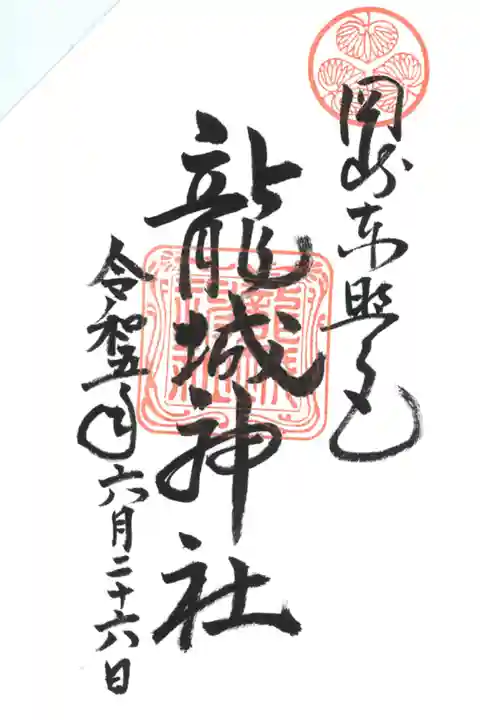 岡崎東照宮
龍城神社
令和五年六月二十六日